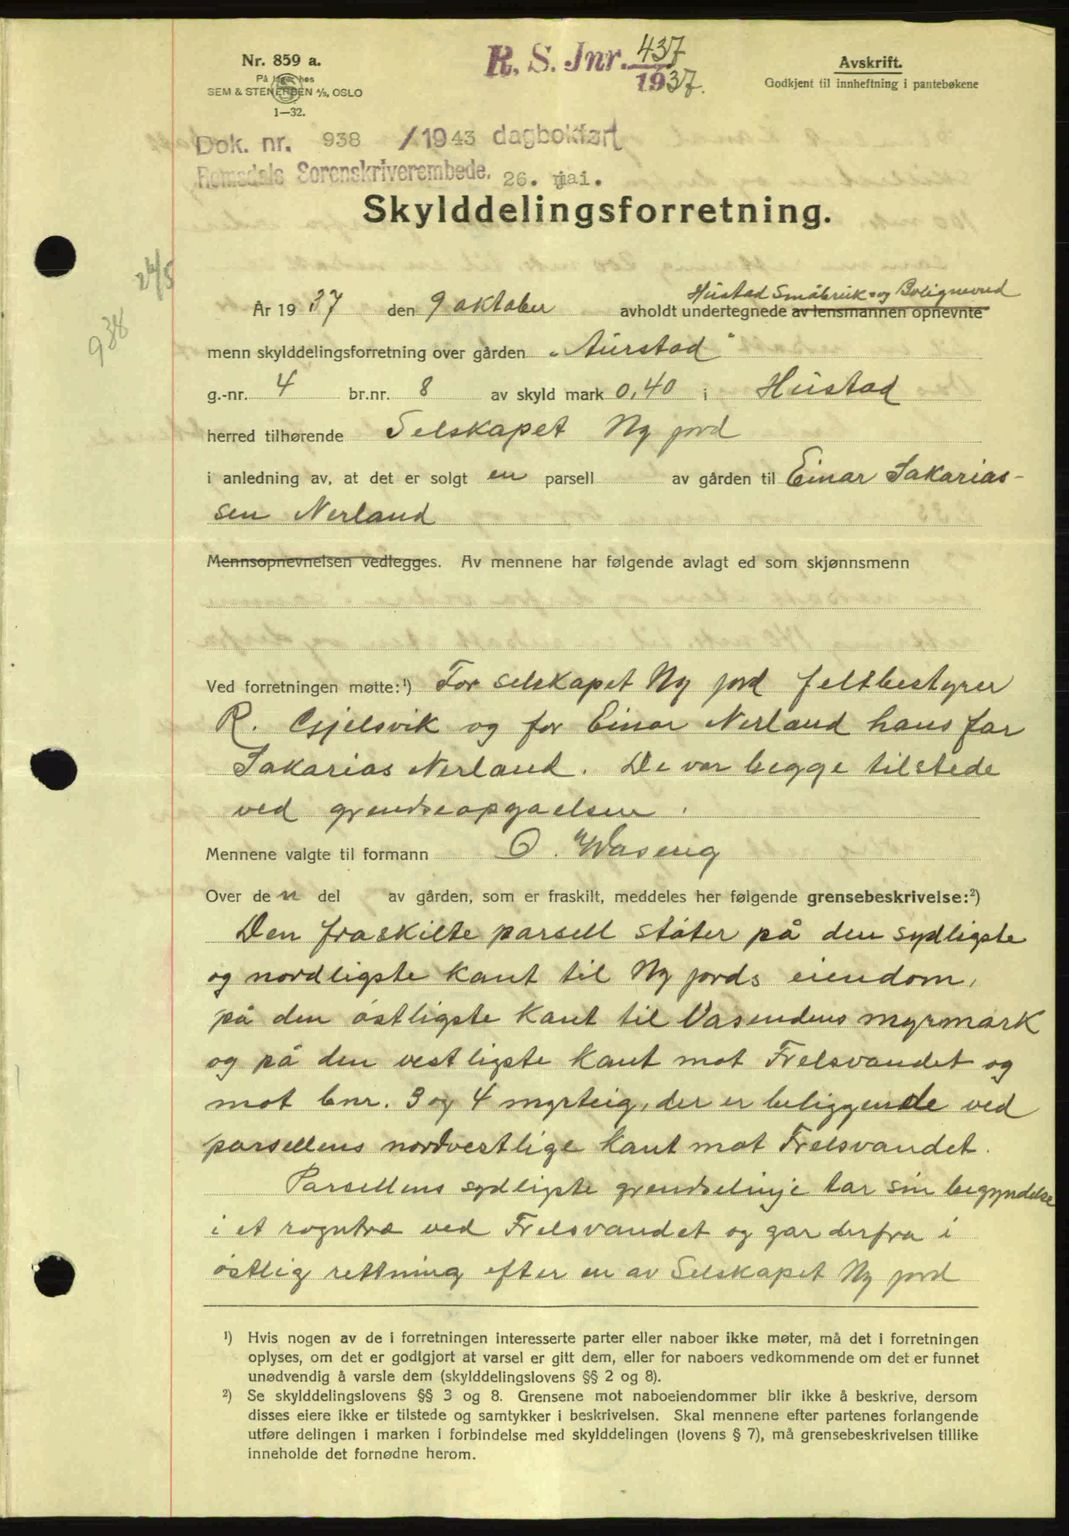 Nr. 859 a.
På lager hos
SEM & STENERSEN A/S, OSLO
1—32.
R. S. Jnr. 437
1937.
Avskrift.
Godkjent til innheftning i pantebøkene
Dok. nr. 938 /1943 dagbokført
Romsdals Sorenskriverembede. 26. mai.
26/5
938
Skylddelingsforretning.
Hustad Småbruk- og Bolignevnd
År 1937 den 9 oktober avholdt undertegnede av lensmannen opnevnte
menn skylddelingsforretning over gården "Aurstad"
g.-nr. 4 br.nr. 8 av skyld mark 0,40 i Hustad
herred tilhørende Selskapet Ny jord
i anledning av, at det er solgt en parsell av gården til Einar Sakarias-
sen Nerland
Mennsopnevnelsen vedlegges. Av mennene har følgende avlagt ed som skjønnsmenn
Ved forretningen møtte:¹) For selskapet Ny jord feltbestyrer
R. Gjelsvik og for Einar Nerland hans far
Sakarias Nerland. De var begge tilstede
ved grendseopgaelsen.
Mennene valgte til formann O. Waseng
Over den del av gården, som er fraskilt, meddeles her følgende grensebeskrivelse:²)
Den fraskilte parsell støter på den sydligste
og nordligste kant til Ny jords eiendom,
på den østligste kant til Vasendens myrmark
og på den vestligste kant mot Frelsvandet og
mot bnr. 3 og 4 myrteig, der er beliggende ved
parsellens nordvestlige kant mot Frelsvandet.
Parsellens sydligste grendselinje tar sin begyndelse
i et rogntræ ved Frelsvandet og gar derfra i
østlig rettning efter en av Selskapet Ny jord
¹) Hvis nogen av de i forretningen interesserte parter eller naboer ikke møter, må det i forretningen
oplyses, om det er godtgjort at varsel er gitt dem, eller for naboers vedkommende om det er funnet
unødvendig å varsle dem (skylddelingslovens §§ 2 og 8).
²) Se skylddelingslovens §§ 3 og 8. Grensene mot naboeiendommer blir ikke å beskrive, dersom
disses eiere ikke er tilstede og samtykker i beskrivelsen. Skal mennene efter partenes forlangende
utføre delingen i marken i forbindelse med skylddelingen (lovens § 7), må grensebeskrivelsen tillike
inneholde det fornødne herom.